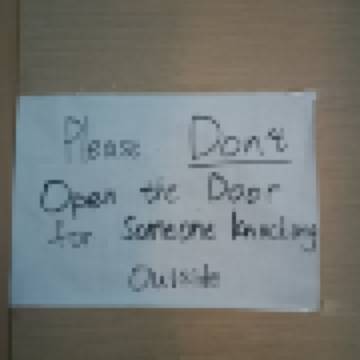 Please Don't
Open the Door
for Someone knocking
Outside